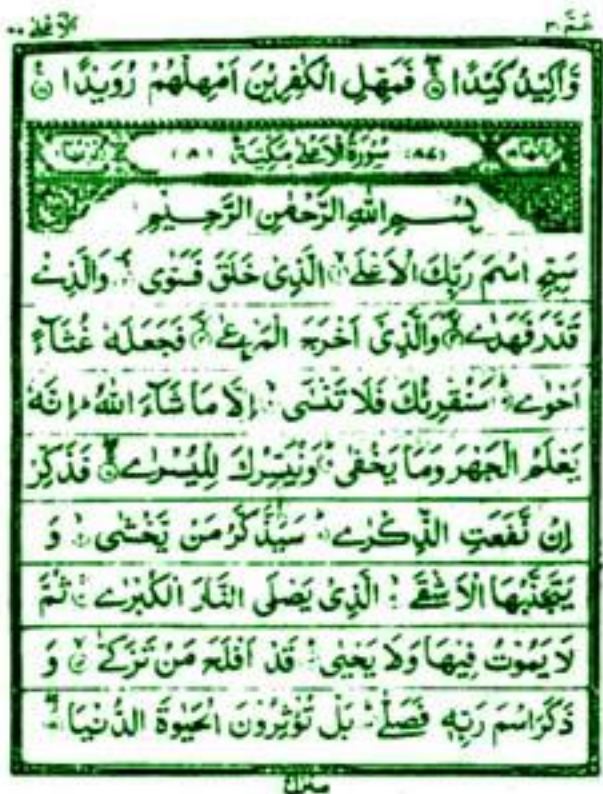 عَمَّ ٣٠
الاعلى ٨٧
وَّاَكِيْدُ كَيْدًا ۝ فَمَهِّلِ الْكٰفِرِيْنَ اَمْهِلْهُمْ رُوَيْدًا ۝
(٨٧) سُوْرَةُ الْاَعْلٰى مَكِّيَّةٌ (٨)
بِسْمِ اللّٰهِ الرَّحْمٰنِ الرَّحِيْمِ
سَبِّحِ اسْمَ رَبِّكَ الْاَعْلَى ۝ الَّذِىْ خَلَقَ فَسَوّٰى ۝ وَالَّذِىْ
قَدَّرَ فَهَدٰى ۝ وَالَّذِىْٓ اَخْرَجَ الْمَرْعٰى ۝ فَجَعَلَهٗ غُثَآءً
اَحْوٰى ۝ سَنُقْرِئُكَ فَلَا تَنْسٰٓى ۝ اِلَّا مَا شَآءَ اللّٰهُ ؕ اِنَّهٗ
يَعْلَمُ الْجَهْرَ وَمَا يَخْفٰى ۝ وَنُيَسِّرُكَ لِلْيُسْرٰى ۝ فَذَكِّرْ
اِنْ نَّفَعَتِ الذِّكْرٰى ۝ سَيَذَّكَّرُ مَنْ يَّخْشٰى ۝ وَ
يَتَجَنَّبُهَا الْاَشْقَى ۝ الَّذِىْ يَصْلَى النَّارَ الْكُبْرٰى ۝ ثُمَّ
لَا يَمُوْتُ فِيْهَا وَلَا يَحْيٰى ۝ قَدْ اَفْلَحَ مَنْ تَزَكّٰى ۝ وَ
ذَكَرَ اسْمَ رَبِّهٖ فَصَلّٰى ۝ بَلْ تُؤْثِرُوْنَ الْحَيٰوةَ الدُّنْيَا ۝
منزل